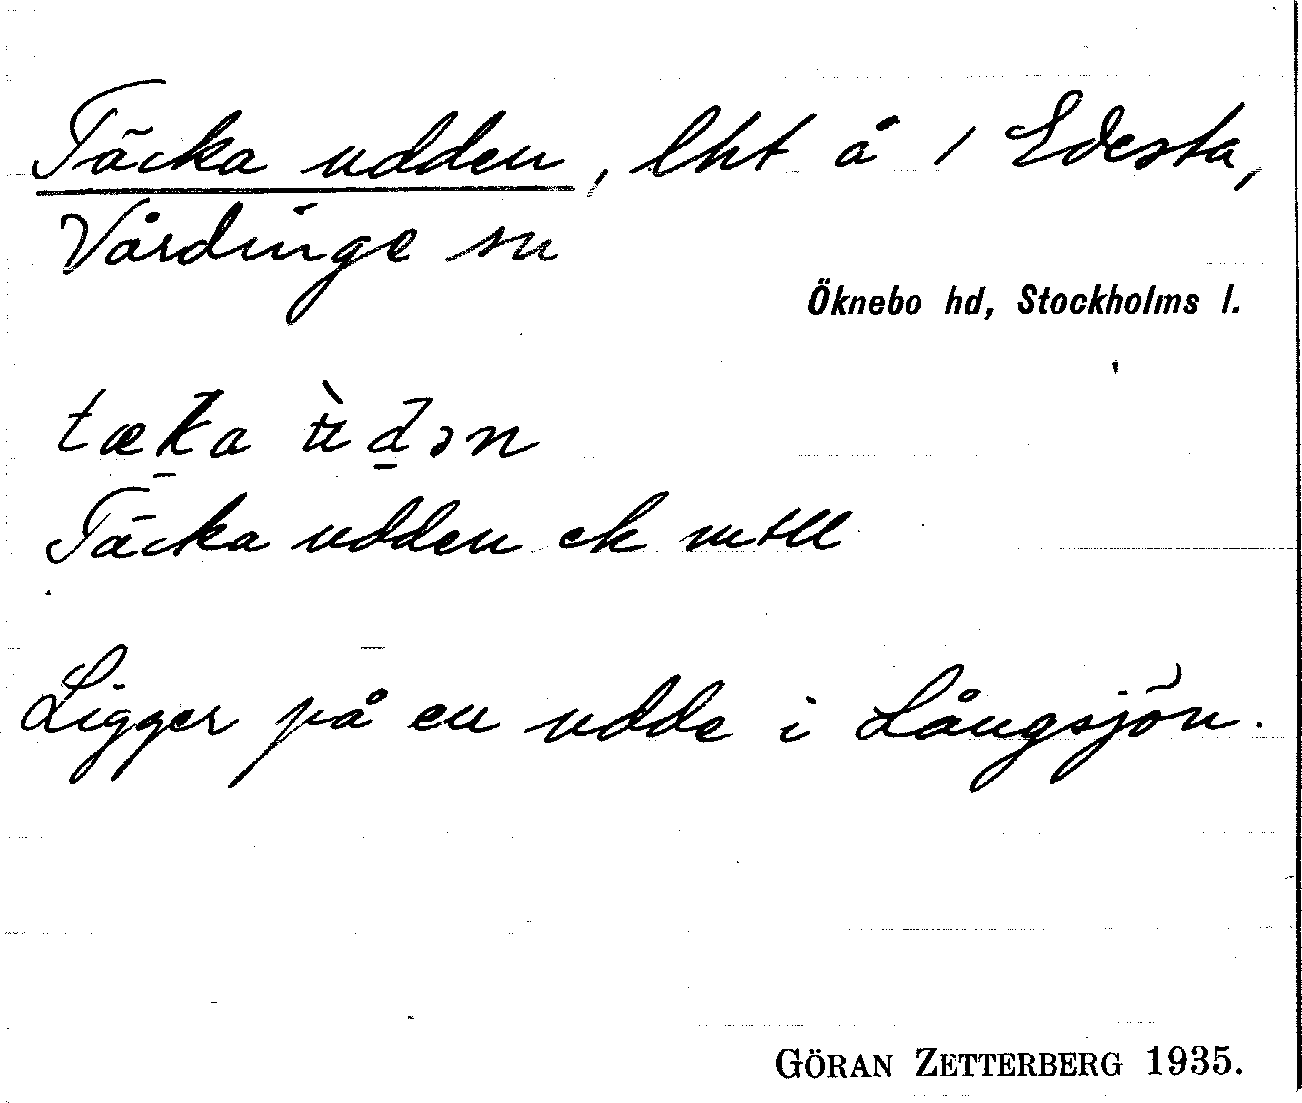 Täcka udden, lht å 1 Edesta,
Vårdinge sn
Öknebo hd, Stockholms l.
tæka ʉ̀dən
Täcka udden ek mtll
Ligger på en udde i Långsjön.
GÖRAN ZETTERBERG 1935.